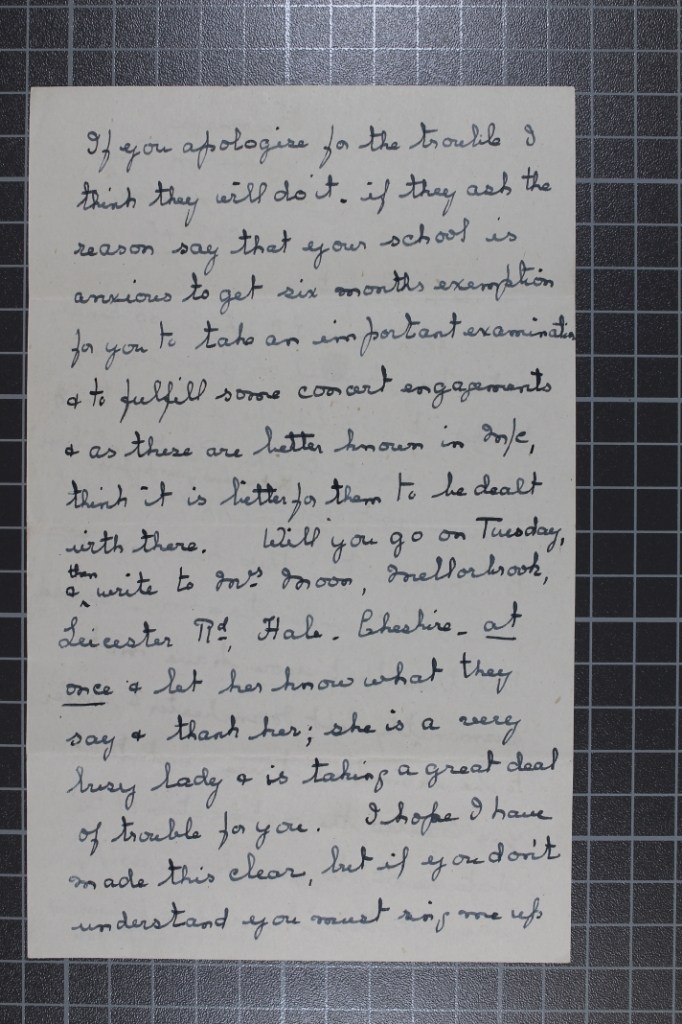 If you apologise for the trouble I
think they will do it. if they ask the
reason say that your school is
anxious to get six months exemption
for you to take an important examination
& to fulfill some concert engagements
& as these are better known in M/c,
think it is better for them to be dealt
with there. Will you go on Tuesday,
then
& write to Mrs Moon, Mellorbrook,
Leicester Rd, Hale. Cheshire. at
once & let her know what they
say & thank her; she is a very
busy lady & is taking a great deal
of trouble for you. I hope I have
made this clear, but if you don't
understand you must ring me up